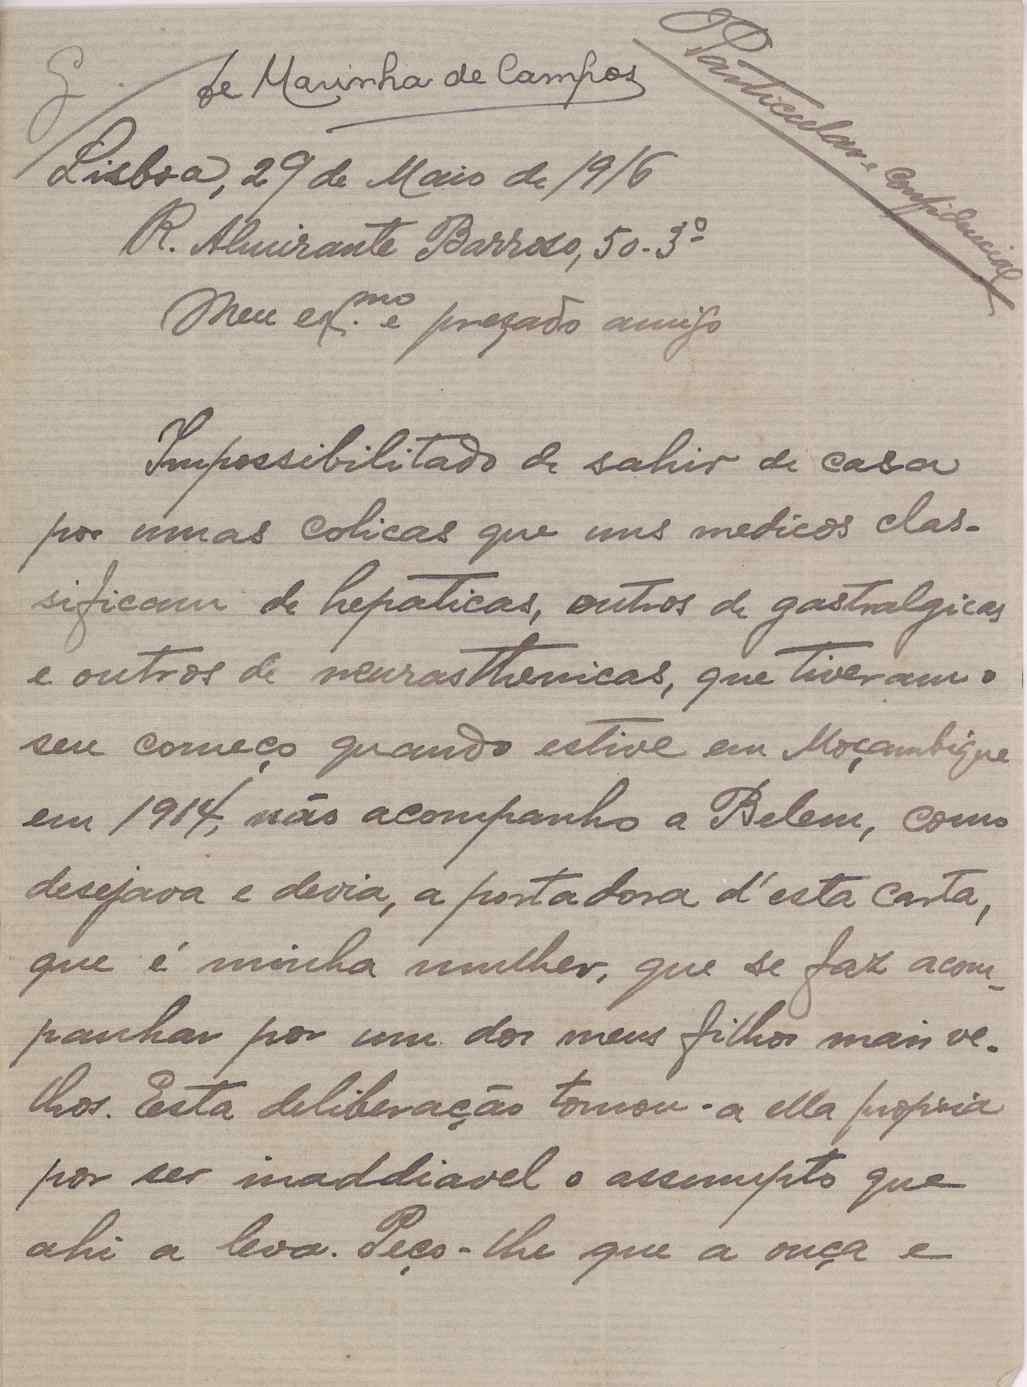 de Marinha de Campos
Particular e Confidencial
Lisboa, 29 de Maio de 1916
R. Almirante Barroso, 50-3º
Meu ex.mo e prezado amigo
Impossibilitado de sahir de casa
por umas colicas que uns medicos clas-
sificam de hepaticas, outros de gastralgicas
e outros de neurasthenicas, que tiveram o
seu começo quando estive em Moçambique
em 1914, não acompanho a Belem, como
desejava e devia, a portadora d'esta carta,
que é minha mulher, que se faz acom-
panhar por um dos meus filhos mais ve-
lhos. Esta deliberação tomou-a ella propria
por ser inaddiavel o assumpto que
ahi a leva. Peço-lhe que a ouça e